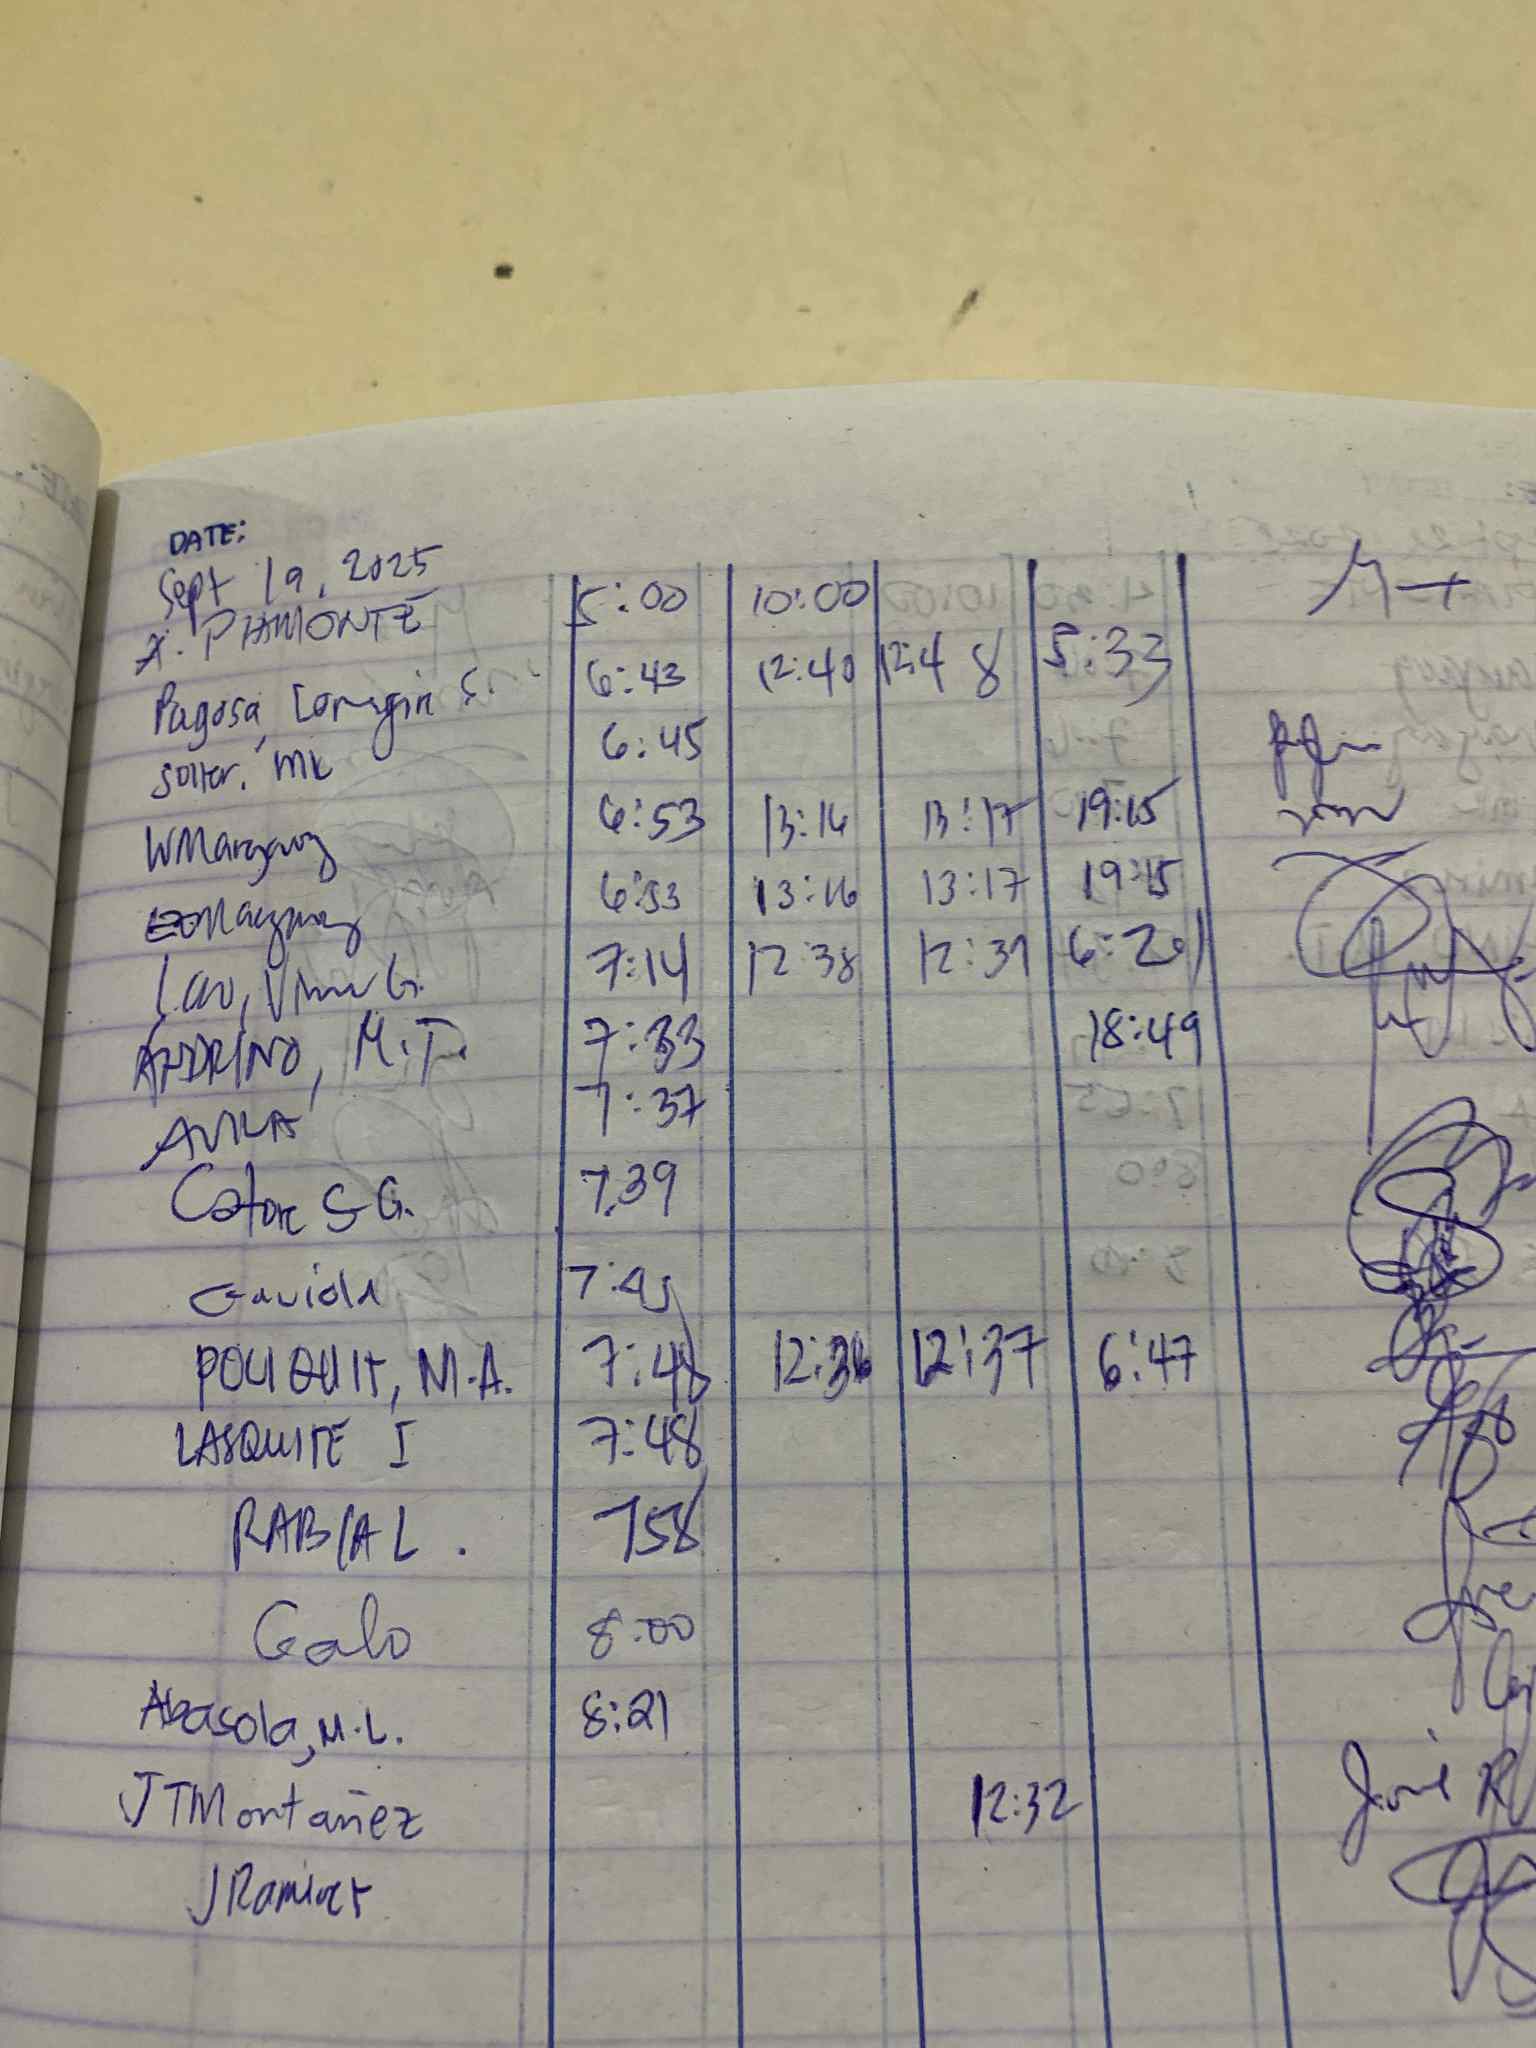 DATE:
Sept 19, 2025
PIAMONTE 5:00 10:00
Pagosa, 6:43 12:40 12:48 5:33
Soller, MK 6:45
WMargavg 6:53 13:16 13:17 19:15
6:53 13:16 13:17 19:15
Lao, G. 7:14 12:38 12:39 6:20
ANDRINO, M.P. 7:33 18:49
AVILA 7:37
S G. 7:39
Gaviola
POLIQUIT, M.A. 7:48 12:36 12:37 6:47
LASQUITE I 7:48
RABIAL. 758
Galo 8:00
Abasola, M.L. 8:21
JTMontañez 12:32
JRamirez